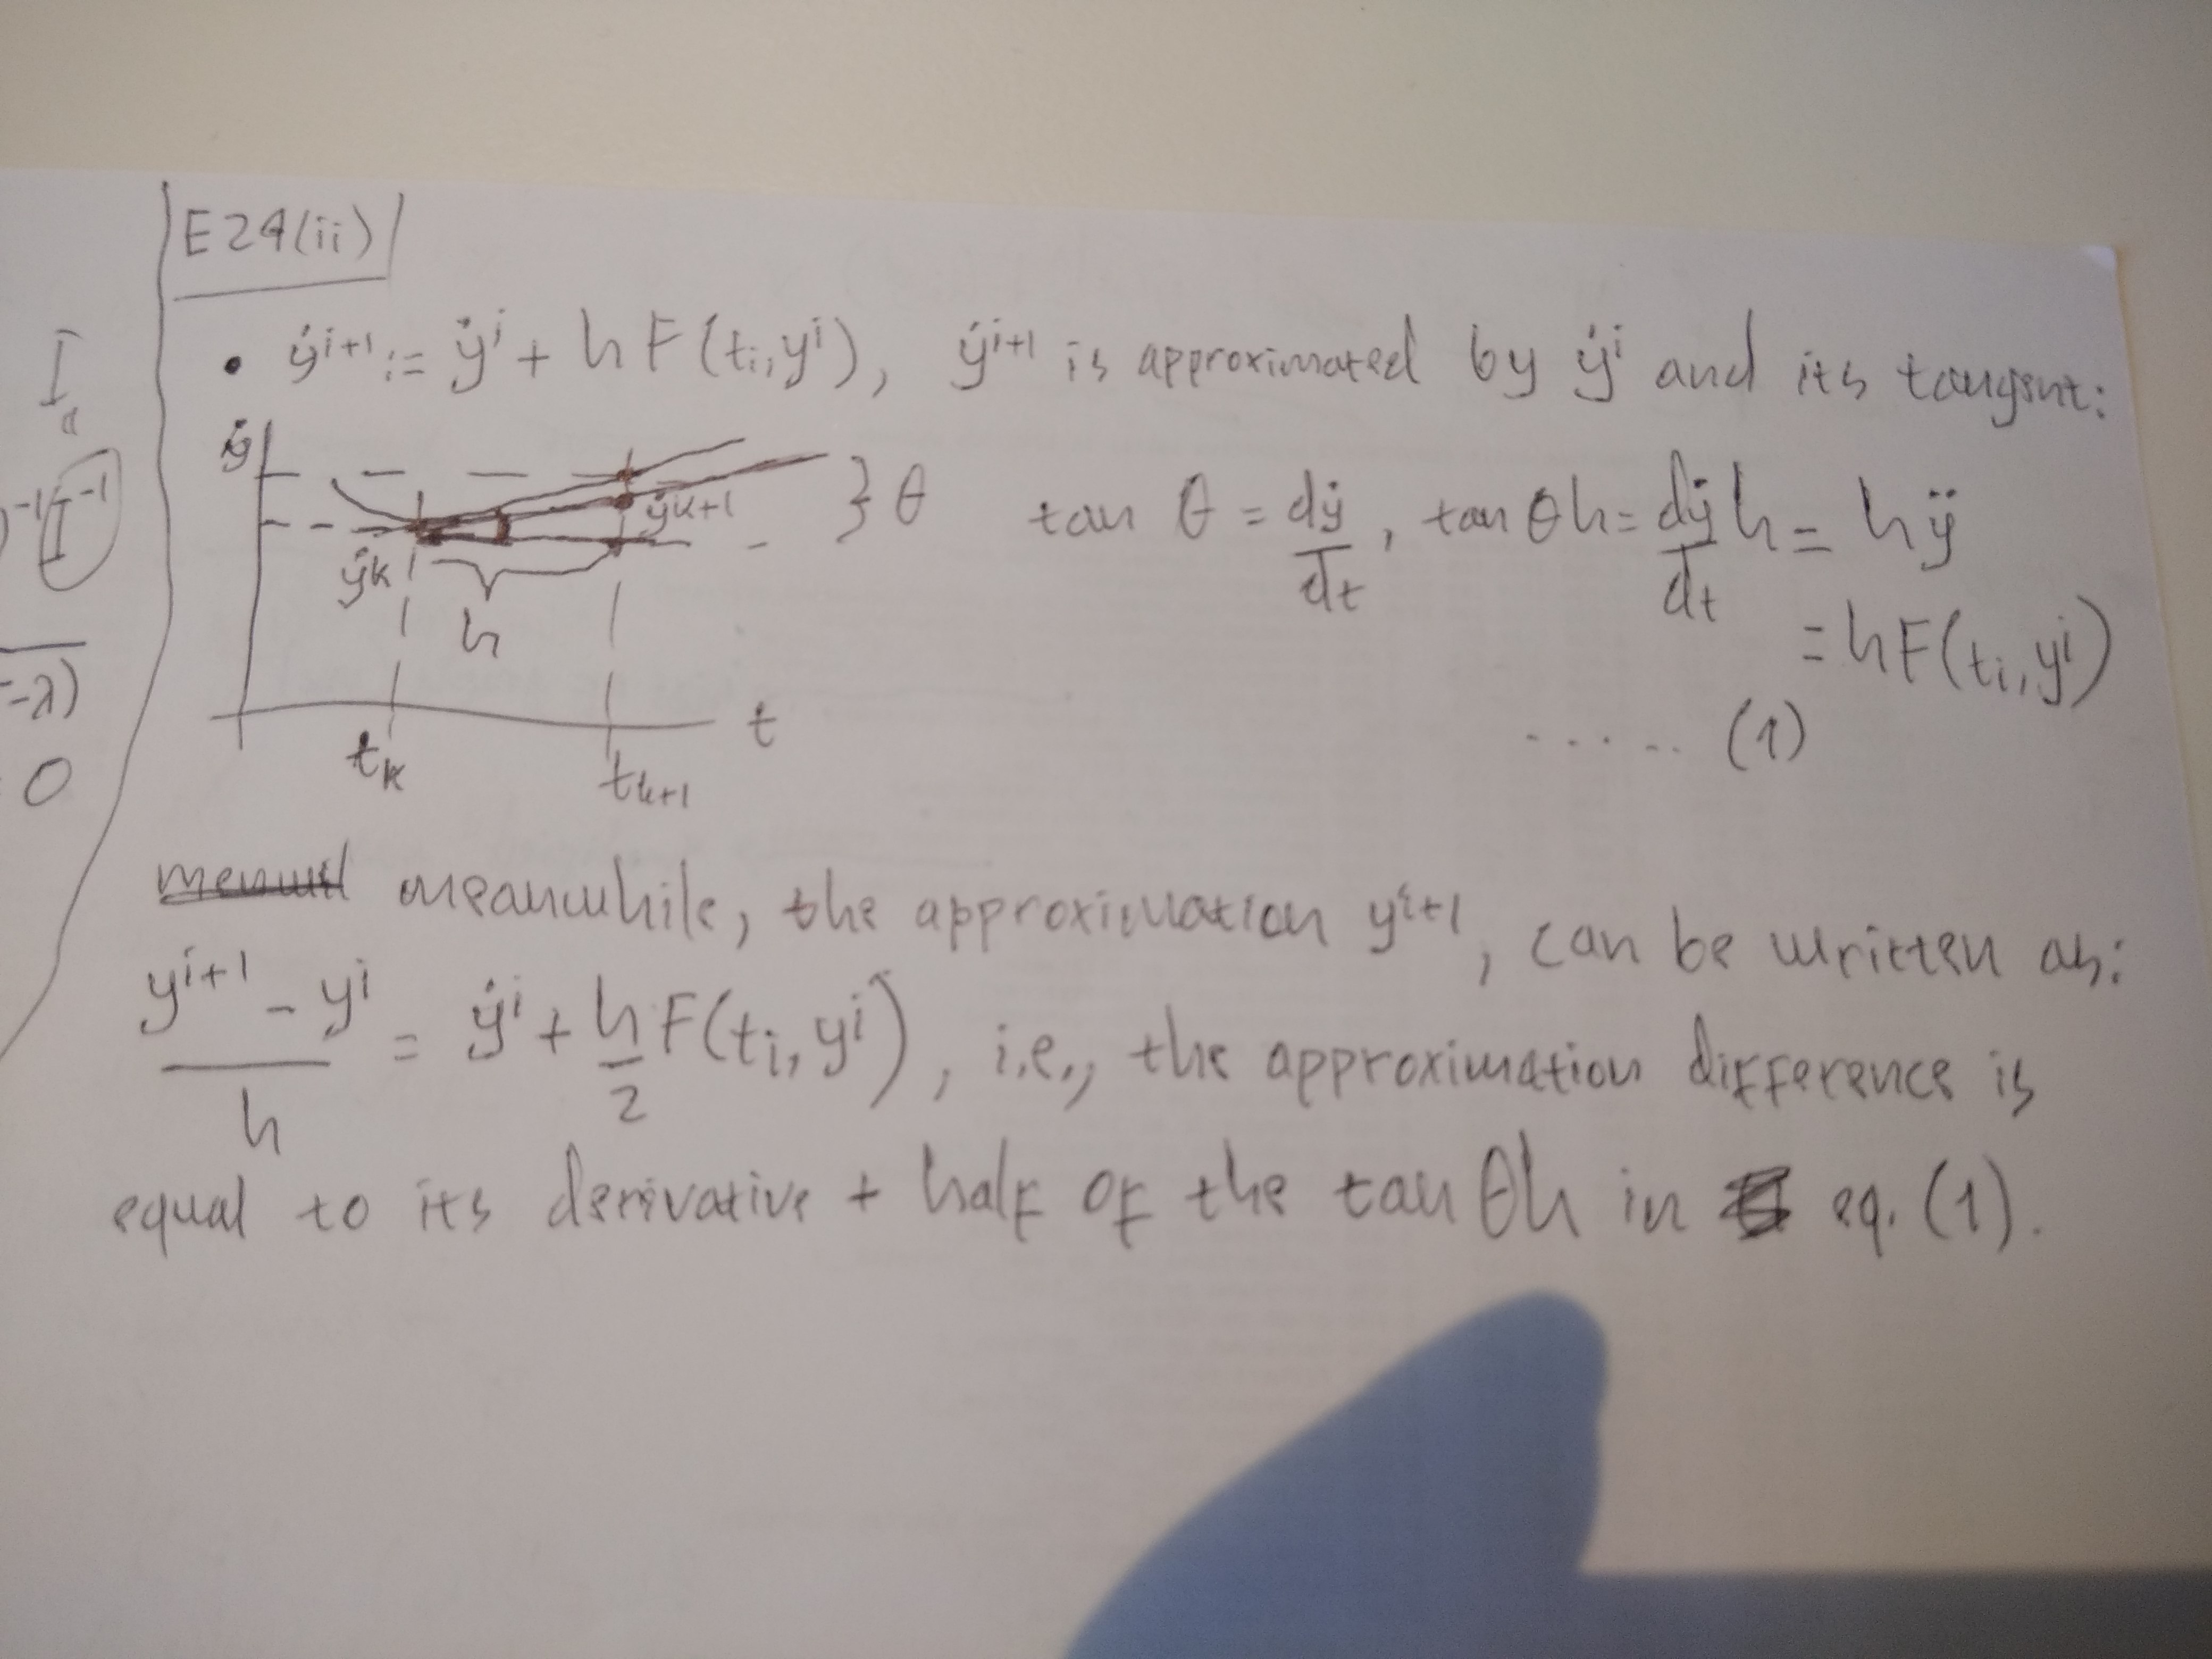 E24(ii)
• ẏⁱ⁺¹ := ẏⁱ + hF(tᵢ, yⁱ), ẏⁱ⁺¹ is approximated by ẏⁱ and its tangent:
ẏ
ẏk+1
} θ
tan θ = dẏ/dt, tan θh = dẏ/dt h = hÿ
ẏk
h
= hF(tᵢ, yⁱ)
...... (1)
t
tk
tk+1
meanwhile, the approximation yⁱ⁺¹, can be written as:
(yⁱ⁺¹ - yⁱ)/h = ẏⁱ + h/2 F(tᵢ, yⁱ), i.e., the approximation difference is
equal to its derivative + half of the tan θh in eq. (1).
I
)⁻¹ I⁻¹
-λ)
0